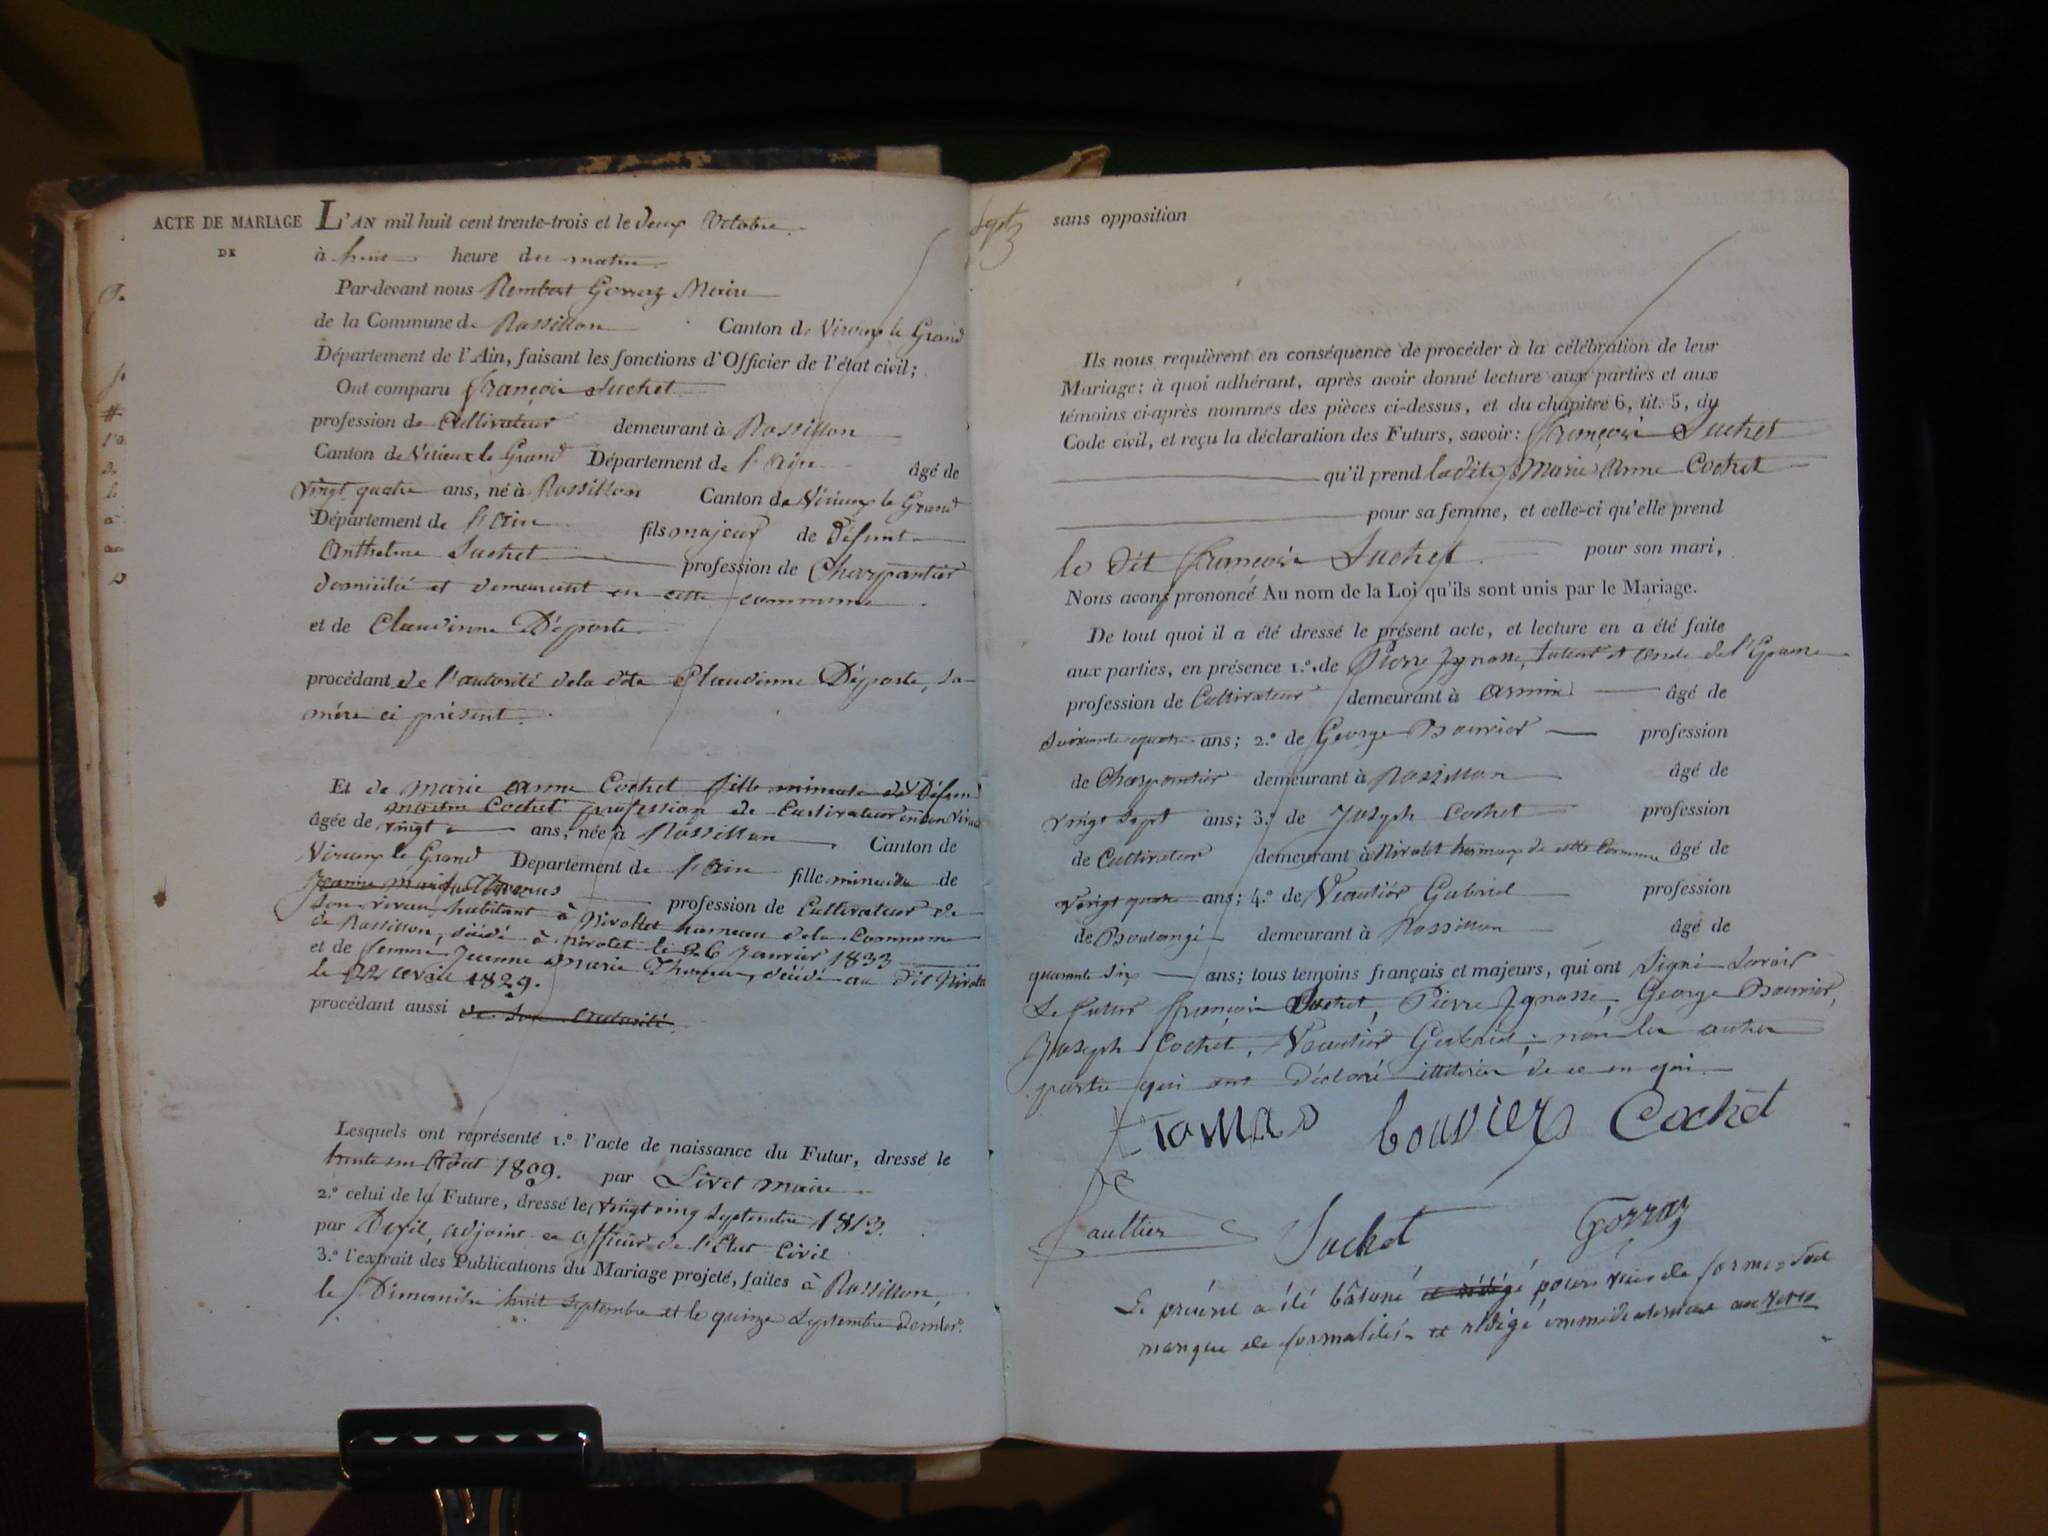 ACTE DE MARIAGE
DE
L'AN mil huit cent trente-trois et le deux Octobre
à huit heure du matin
Par-devant nous Rembert Gorraz Maire
de la Commune de Rossillon Canton de Virieux le Grand
Département de l'Ain, faisant les fonctions d'Officier de l'état civil;
Ont comparu françois Suchet
profession de Cultivateur demeurant à Rossillon
Canton de Virieux le Grand Département de l'Ain âgé de
vingt quatre ans, né à Rossillon Canton de Virieux le Grand
Département de l'Ain fils majeur de Défunt
Anthelme Suchet profession de Charpantier
domicilié et demeurant en cette commune
et de Claudinne Déporte
procédant de l'autorité dela dite Claudinne Déporte, sa
mère ci présent.
Et de Marie Anne Cochet fille mineure de Défunt
Cochet profession de Cultivateur en son vivant
âgée de vingt ans, née à Rossillon Canton de
Virieux le Grand Département de l'Ain fille mineure de
Jeanne Marie profession de Cultivateur
son vivant habitant à Nivollet hameau dela Commune
de Rossillon, décédé à Nivolet le 26 Janvier 1833
et de femme Jeanne Marie, décédé au dit Nivolet
le 22 avril 1829.
procédant aussi de son autorité
Lesquels ont représenté 1.º l'acte de naissance du Futur, dressé le
trente un Août 1809. par Livet maire
2.º celui de la Future, dressé le vingt cinq Septembre 1813.
par adjoint et officier de l'Etat Civil
3.º l'extrait des Publications du Mariage projeté, faites à Rossillon,
le Dimanche huit Septembre et le quinze Septembre dernier.
sans opposition
Ils nous requièrent en conséquence de procéder à la célébration de leur
Mariage: à quoi adhérant, après avoir donné lecture aux parties et aux
témoins ci-après nommés des pièces ci-dessus, et du chapitre 6, tit. 5, du
Code civil, et reçu la déclaration des Futurs, savoir: françois Suchet
qu'il prend la dite Marie Anne Cochet
pour sa femme, et celle-ci qu'elle prend
le dit françois Suchet pour son mari,
Nous avons prononcé Au nom de la Loi qu'ils sont unis par le Mariage.
De tout quoi il a été dressé le présent acte, et lecture en a été faite
aux parties, en présence 1.º de Pierre Ignasse, tuteur et oncle de l'
profession de Cultivateur demeurant à Armix âgé de
Soixante quatre ans; 2.º de George Bouvier profession
de Charpentier demeurant à Rossillon âgé de
vingt sept ans; 3.º de Joseph Cochet profession
de Cultivateur demeurant à Nivolet hameaux de cette Commune âgé de
vingt quatre ans; 4.º de Veautier Gabriel profession
de Boulangé demeurant à Rossillon âgé de
quarante six ans; tous témoins français et majeurs, qui ont Signé Savoir
Le futur françois Suchet, Pierre Ignasse, George Bouvier,
Joseph Cochet, Veautier Gabriel; non les autres
partie qui ont déclaré illitérés de ce enquis.
bouvier Cochet
Suchet Gorraz
Le présent a été bâtoné et rédigé pour vice de forme
manque de formalités et rédigé immédiatement au verso